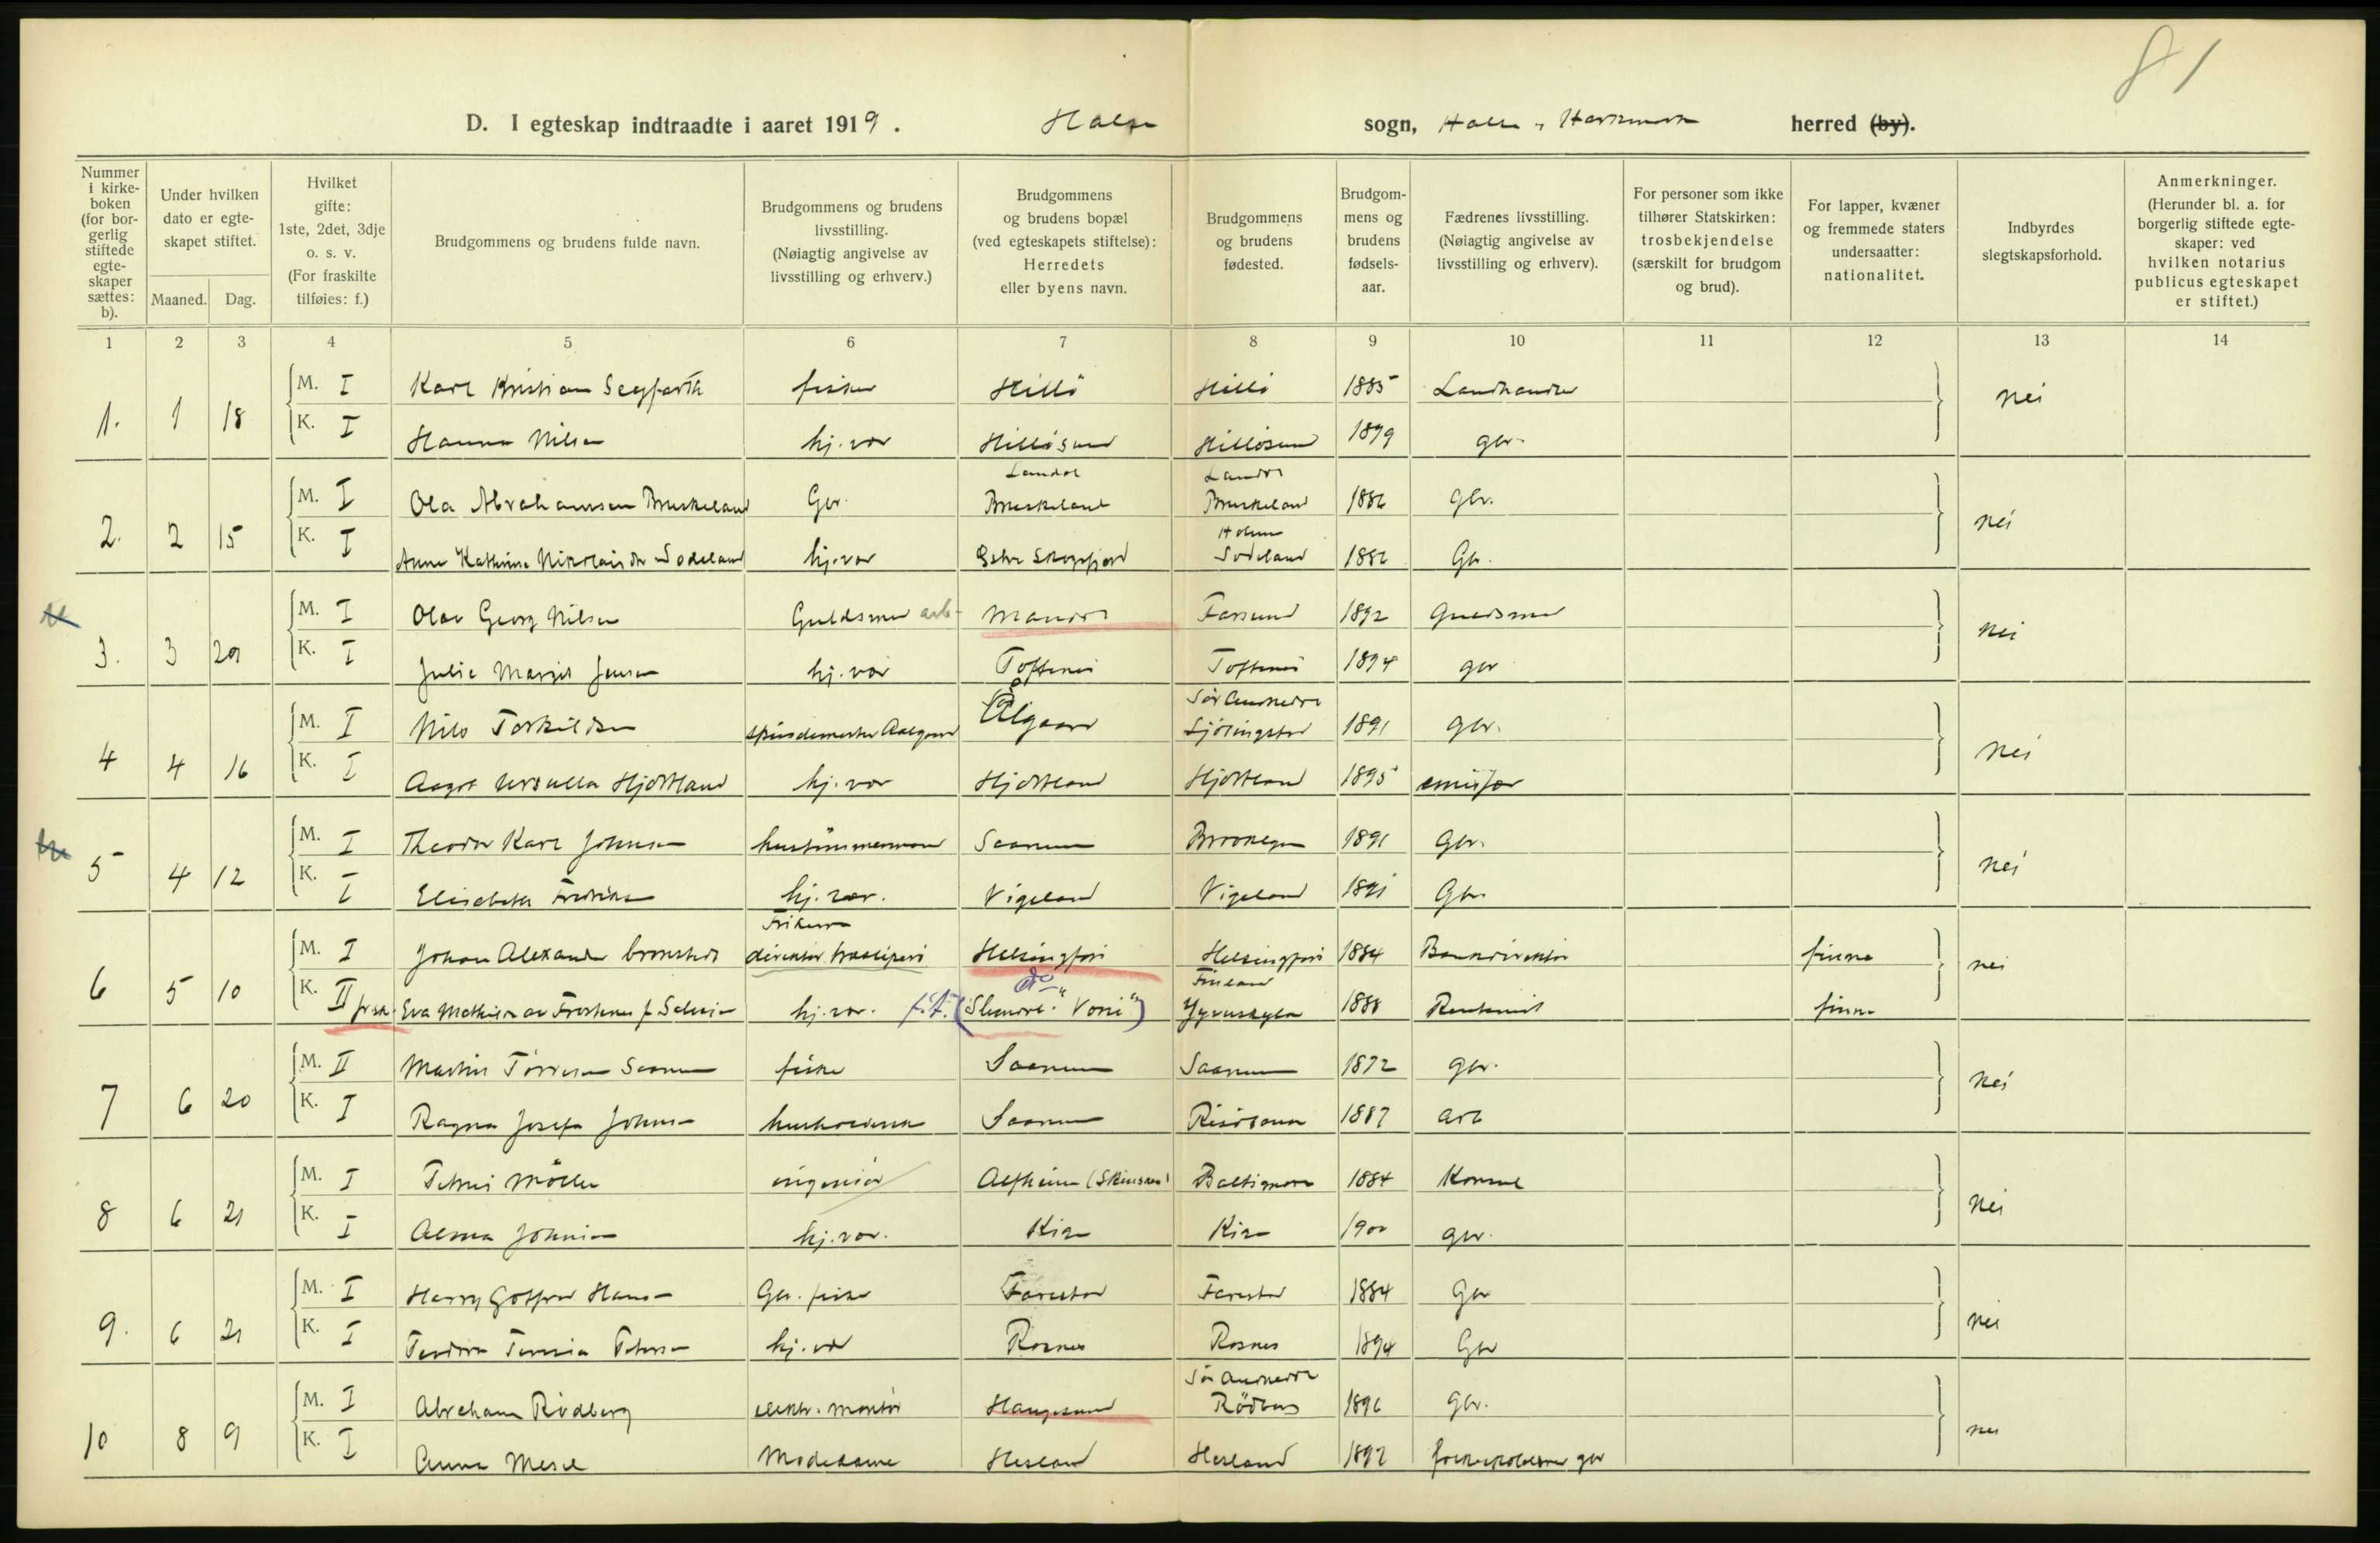 81
D. I egteskap indtraadte i aaret 1919. Halse sogn, Halse & Harkmark herred (by).
Nummer i kirke-boken (for bor-gerlig stiftede egte-skaper sættes: b).
Under hvilken dato er egte-skapet stiftet.
Maaned. Dag.
Hvilket gifte: 1ste, 2det, 3dje o. s. v. (For fraskilte tilføies: f.)
Brudgommens og brudens fulde navn.
Brudgommens og brudens livsstilling. (Nøiagtig angivelse av livsstilling og erhverv.)
Brudgommens og brudens bopæl (ved egteskapets stiftelse): Herredets eller byens navn.
Brudgommens og brudens fødested.
Brudgom-mens og brudens fødsels-aar.
Fædrenes livsstilling. (Nøiagtig angivelse av livsstilling og erhverv).
For personer som ikke tilhører Statskirken: trosbekjendelse (særskilt for brudgom og brud).
For lapper, kvæner og fremmede staters undersaatter: nationalitet.
Indbyrdes slegtskapsforhold.
Anmerkninger. (Herunder bl. a. for borgerlig stiftede egte-skaper: ved hvilken notarius publicus egteskapet er stiftet.)
1 2 3 4 5 6 7 8 9 10 11 12 13 14
1. 1 18 M. I Karl Kristian Seyffarth fisker Hillö Hillö 1885 Landhandler nei
K. I Hanna Nilsen hj. vær Hillösund Hillösund 1899 gbr.
Landal Landal
2. 2 15 M. I Ola Abrahamsen Bruskeland Gbr. Bruskeland Bruskeland 1886 gbr. nei
Holum
K. I Anne Kathrine Nikolaisdtr Sodeland hj. vær Skogsfjord Sodeland 1882 Gbr.
3. 3 29 M. I Olav Georg Nilsen Guldsmed arb. Mandal Farsund 1892 Guldsmed nei
K. I Julie Margit Jensen hj. vær Toftenes Toftenes 1894 gbr
Sör Audnedal
4 4 16 M. I Nils Torkildsen spindemester Aalgaard Ålgaard Sjölingstad 1891 gbr. nei
K. I Aagot Ursulla Hjortland hj. vær Hjortland Hjortland 1895 emissær
5 4 12 M. I Theodor Karl Johnsen hustömmermand Saanum 1891 Gbr. nei
K. I Elisabeth Fredriksen hj. vær. Vigeland Vigeland 1891 Gbr.
6 5 10 M. I Johan Alexander direktör træsliperi Helsingfors Helsingfors 1884 Bankdirektör finne nei
do Finland
K. II frsk. Eva Mathilda av Frosterus f. hj. vær. f.t. ("Voni") Jyväskylä 1888 Rentenist finne
7 6 20 M. II Martin Törresen Saanum fisker Saanum Saanum 1872 gbr. nei
K. I Ragna Josefa Johnsen husholderske Saanum Risöbank 1887 arb
8 6 21 M. I Petrus Möller ingeniör Alfheim (Skinsnes) Baltimore 1884 Konsul nei
K. I Alma Johnsen hj. vær. Kige Kige 1900 gbr.
9. 6 21 M. I Harry Gotfred Hansen Gbr. fisker Farestad Farestad 1884 Gbr nei
K. I Teodora Teresia Petersen hj. vær Rosnes Rosnes 1894 Gbr
Sör Audnedal
10 8 9 M. I Abraham Rödberg elektr. montör Haugesund Rödberg 1896 gbr. nei
K. I Anna Mesel Modedame Hesland Hesland 1892 gbr